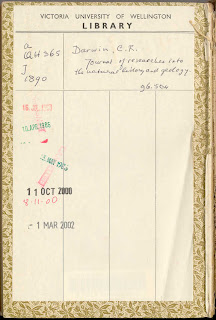 VICTORIA UNIVERSITY OF WELLINGTON
LIBRARY
a
QH365
J
1890
Darwin, C.R.
Journal of researches into
the natural history and geology.
11 OCT 2000
8-11-00
- 1 MAR 2002